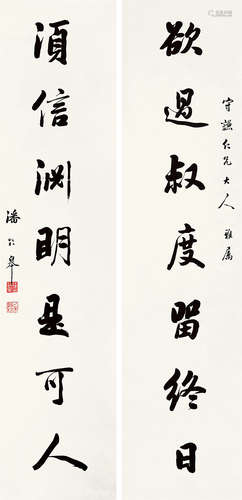 守謙仁兄大人 雅属
欲過叔度留終日
須信淵明是可人
潘龄皋